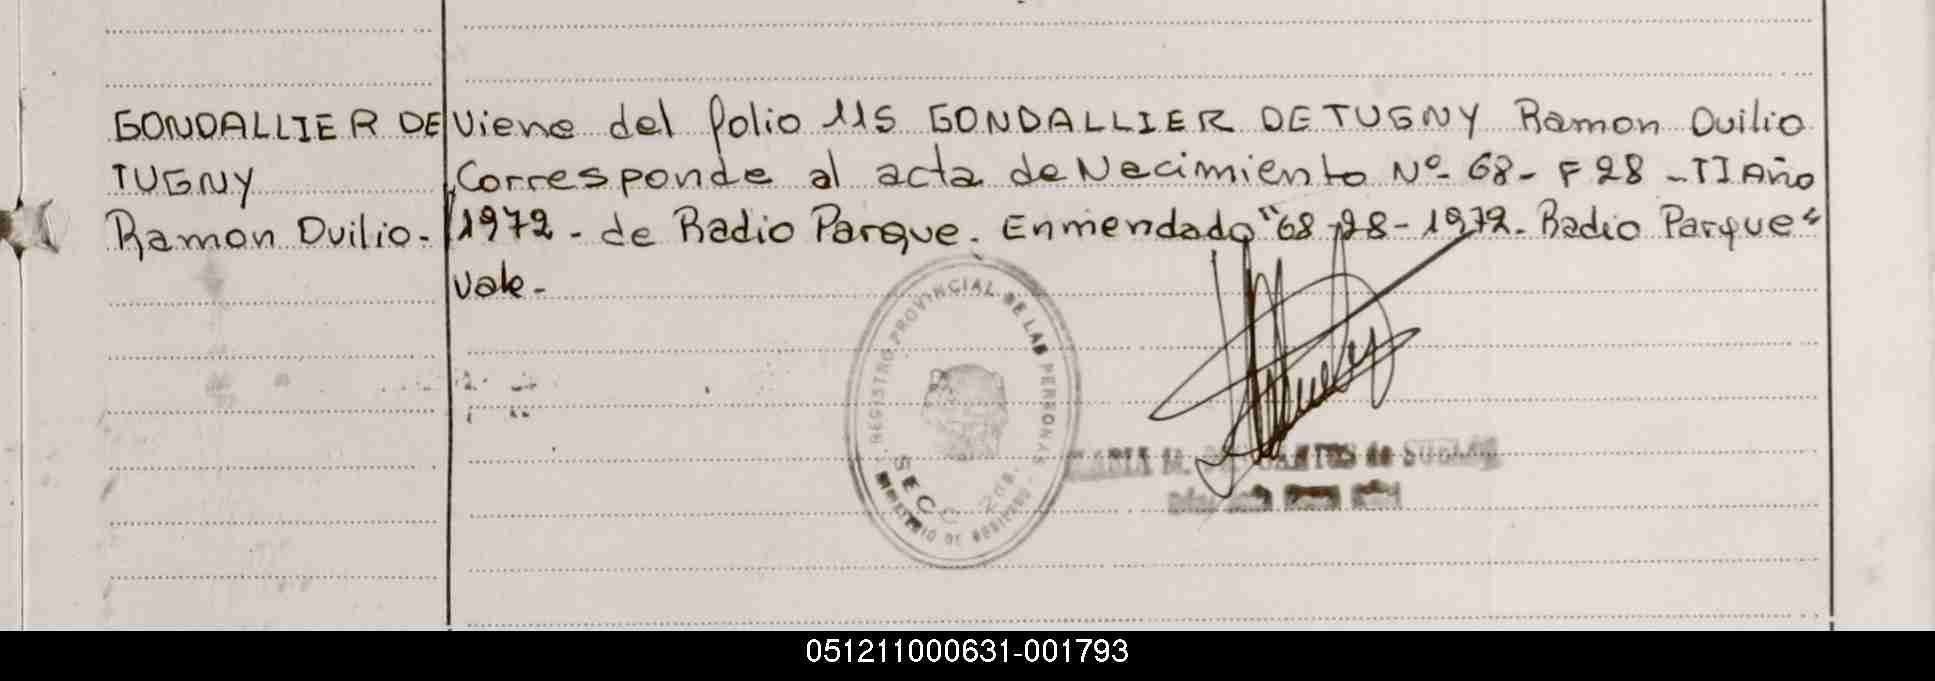 GONDALLIER DE
TUGNY
Ramon Duilio.-
Viene del folio 115 GONDALLIER DE TUGNY Ramon Duilio
Corresponde al acta de Nacimiento Nº 68- F 28 - TI Año
1972 - de Radio Parque. Enmendado "68-28-1972- Radio Parque"
Vale-
REGISTRO PROVINCIAL DE LAS PERSONAS
SECC
MINISTERIO DE GOBIERNO
051211000631-001793